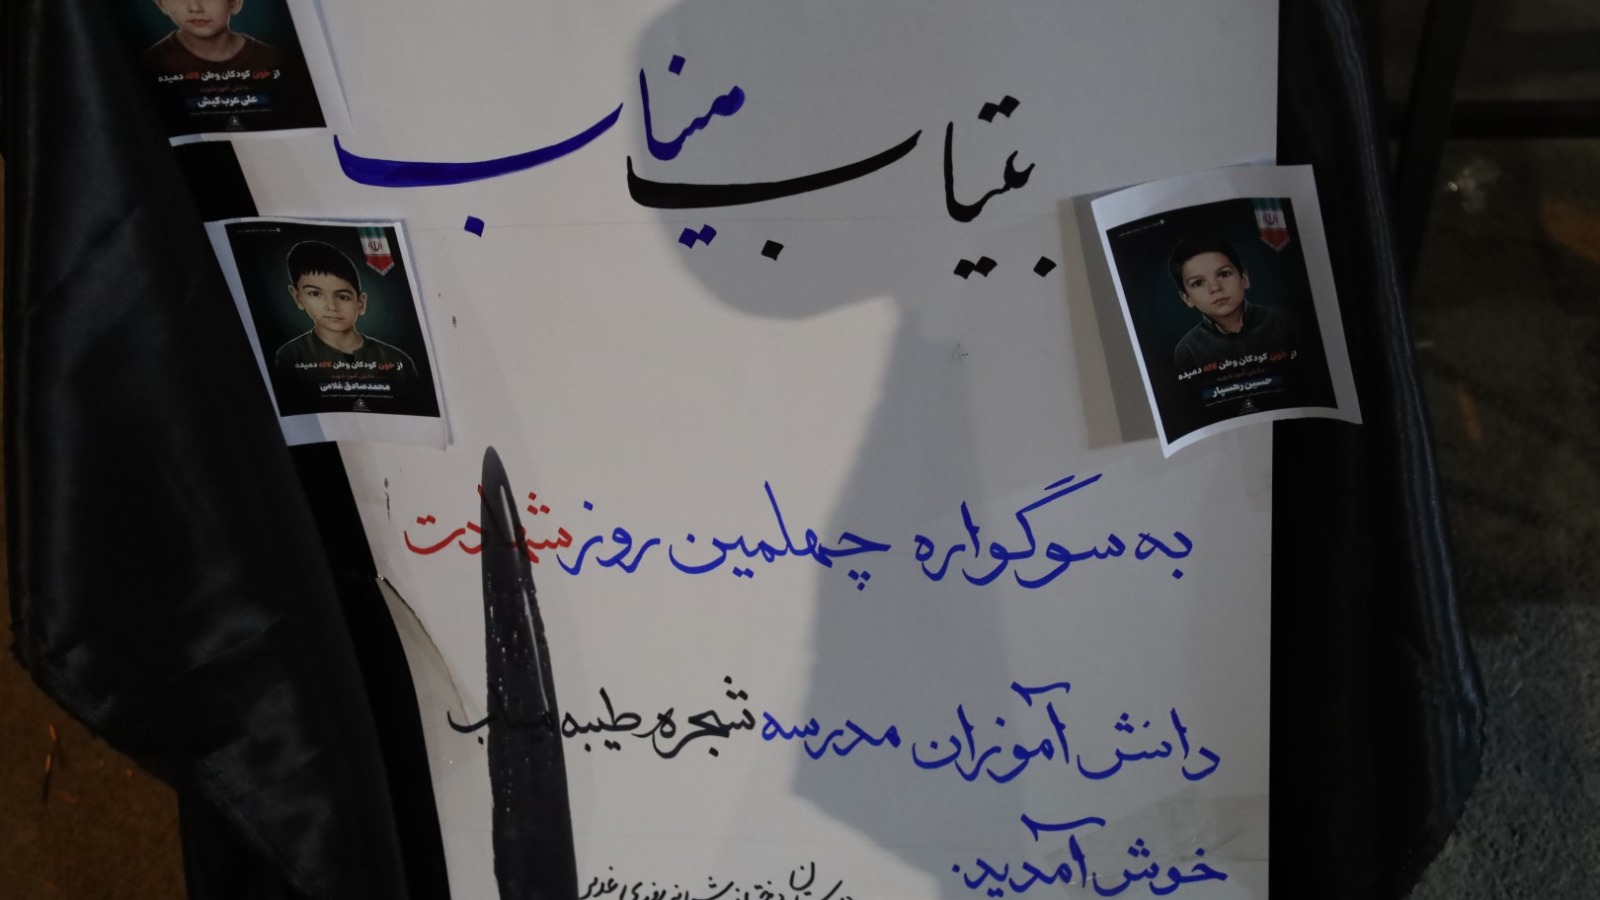 بیتاب میناب
به سوگواره چهلمین روز شهادت
دانش آموزان مدرسه شجره طیبه میناب
خوش آمدید.
از خون کودکان وطن لاله دمیده
دانش آموز شهید
علی عرب کیش
از خون کودکان وطن لاله دمیده
دانش آموز شهید
محمدصادق غلامی
از خون کودکان وطن لاله دمیده
دانش آموز شهید
حسین رهسپار